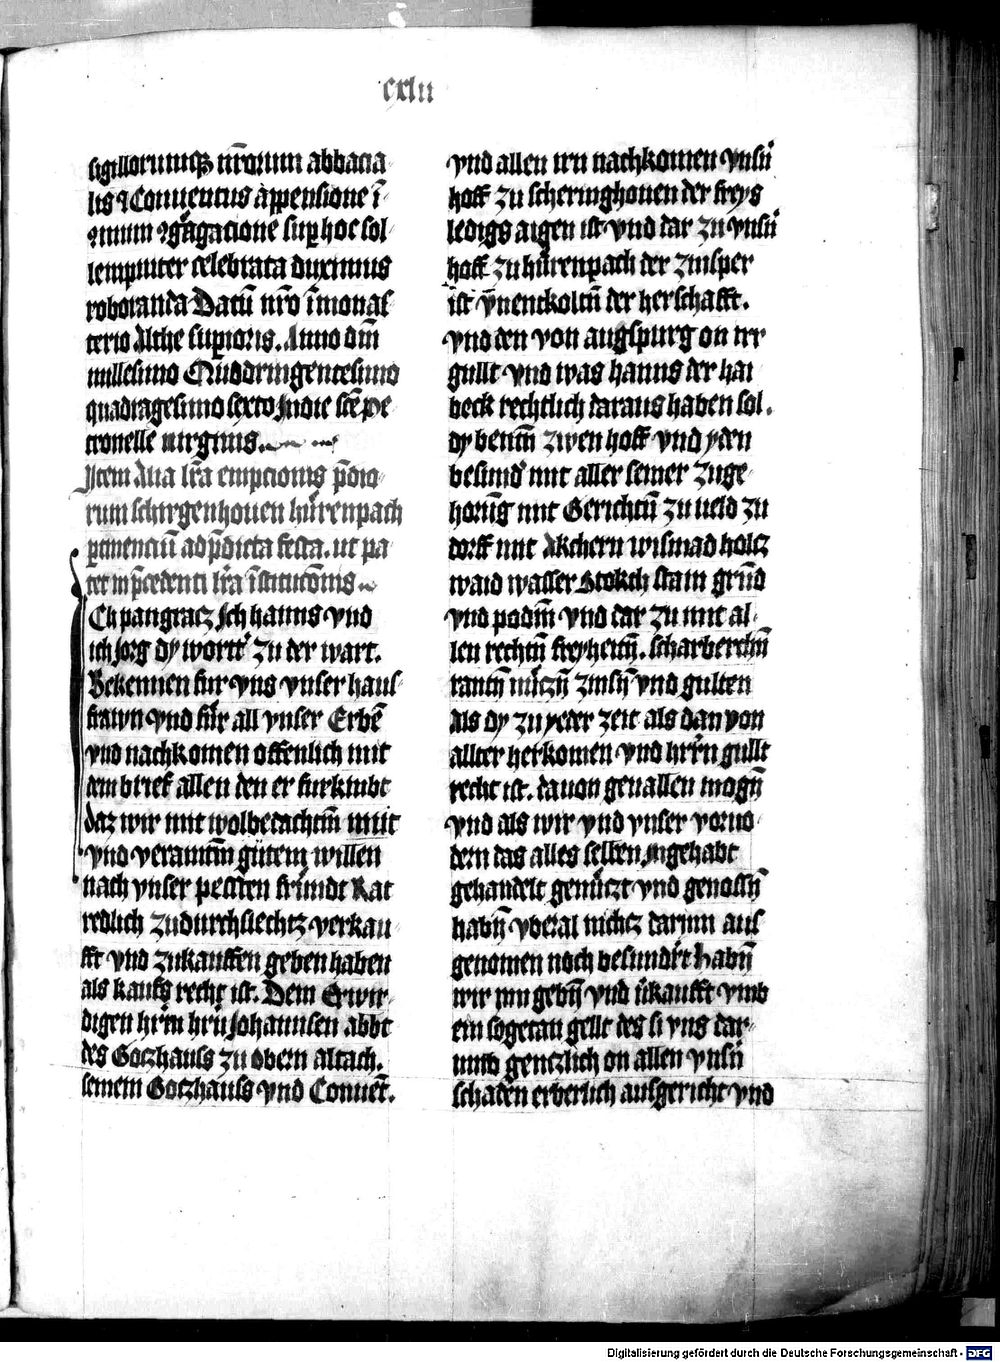 cxlii
sigillorumq nr̄orum abbacia
lis ⁊ Conuentus appensione ī
⁊mum ⁊gͣgacione sup hoc sol
lempniter celebrata duximus
roboranda Datū nr̄o ī monas
terio Althe supioris. Anno dm̄
millesimo Quadringentesimo
quadragesimo sexto In die scē Pe
tronelle virginis.
Item Alia lr̄a empcionis p̄dio
rum schirgenhouen hürenpach
ptinenciū ad p̄dicta festa. ut pa
ter in p̄cedenti lr̄a īstitucōnis
Ch pangracz Ich hanns vnd
ich Jorg dy wortt' zu der wart.
Bekennen fur vns vnser haus
frawn vnd für all vnser Erbē
vnd nachkomen offenlich mit
dem brief allen den er furkumbt
daz wir mit wolbedachtm̄ mut
vnd veraintm̄ gutem willen
nach vnser pesten freundt Rat
redlich zudurchslechtz verkau
fft vnd zukauffen geben haben
als kaufs recht ist. Dem Erwir
digen hr̄n hr̄n Johannsen abbt
des Gotzhauss zu obern altach.
seinem Gotzhauss vnd Conuēt.
vnd allen irn nachkomen vnsn̄
hoff zu scheringhouen der freys
ledigs aigen ist vnd dar zu vnsn̄
hoff zu hürenpach der zinsper
ist ynenckoltn̄ der herschafft.
vnd den von augspurg on irr
gullt vnd was hanns der hai
beck rechtlich daraus haben sol.
dy benn̄tn̄ zwen hoff vnd yden
besund' mit aller seiner zuge
horūg mit Gerichtn̄ zu veld zu
dorff mit Akchern wismad holcz
waid wasser Stokch stain grūd
vnd podm̄ vnd dar zu mit al
len rechtn̄ freyheitn̄. scharberchn̄
rantn̄ nüczn̄ zinsn̄ vnd gulten
als dy zu yeder zeit als dan von
allter herkomen vnd hr̄rn gullt
recht ist. dauon geuallen mogn̄
vnd als wir vnd vnser voruo
dern das alles selben Ingehabt
gehandelt genüczt vnd genossn̄
habn̄ vberal nichtz darinn aus
genomen noch besundr̄t habn̄
wir nu gebn̄ vnd v'kaufft vmb
ein sogetan gellt des si vns dar
umb genczlich on allen vnsn̄
schaden erberlich ausgericht vnd
Digitalisierung gefördert durch die Deutsche Forschungsgemeinschaft - DFG